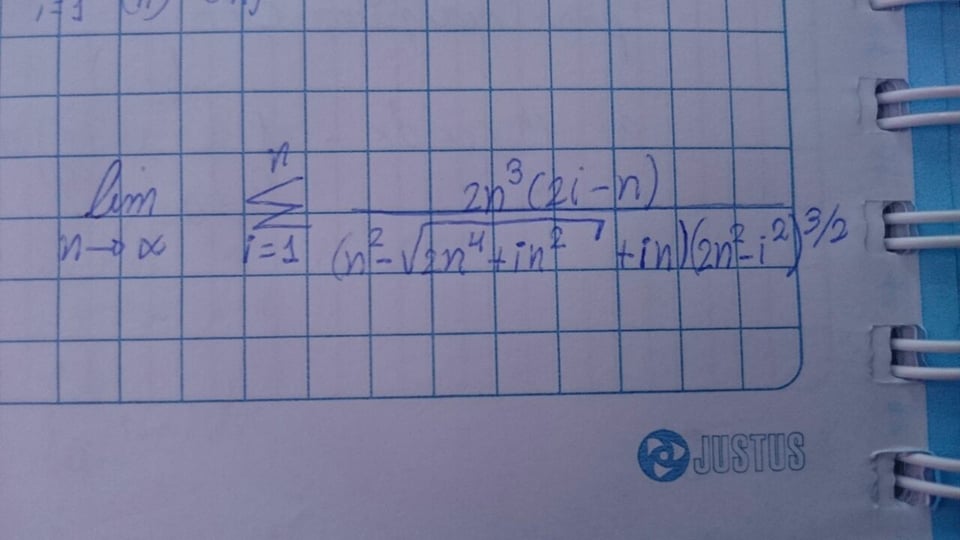 lim n→∞ n Σ i=1 2n³(2i-n) / (n²-√(2n⁴+in²) +in)(2n²-i²)^3/2
JUSTUS